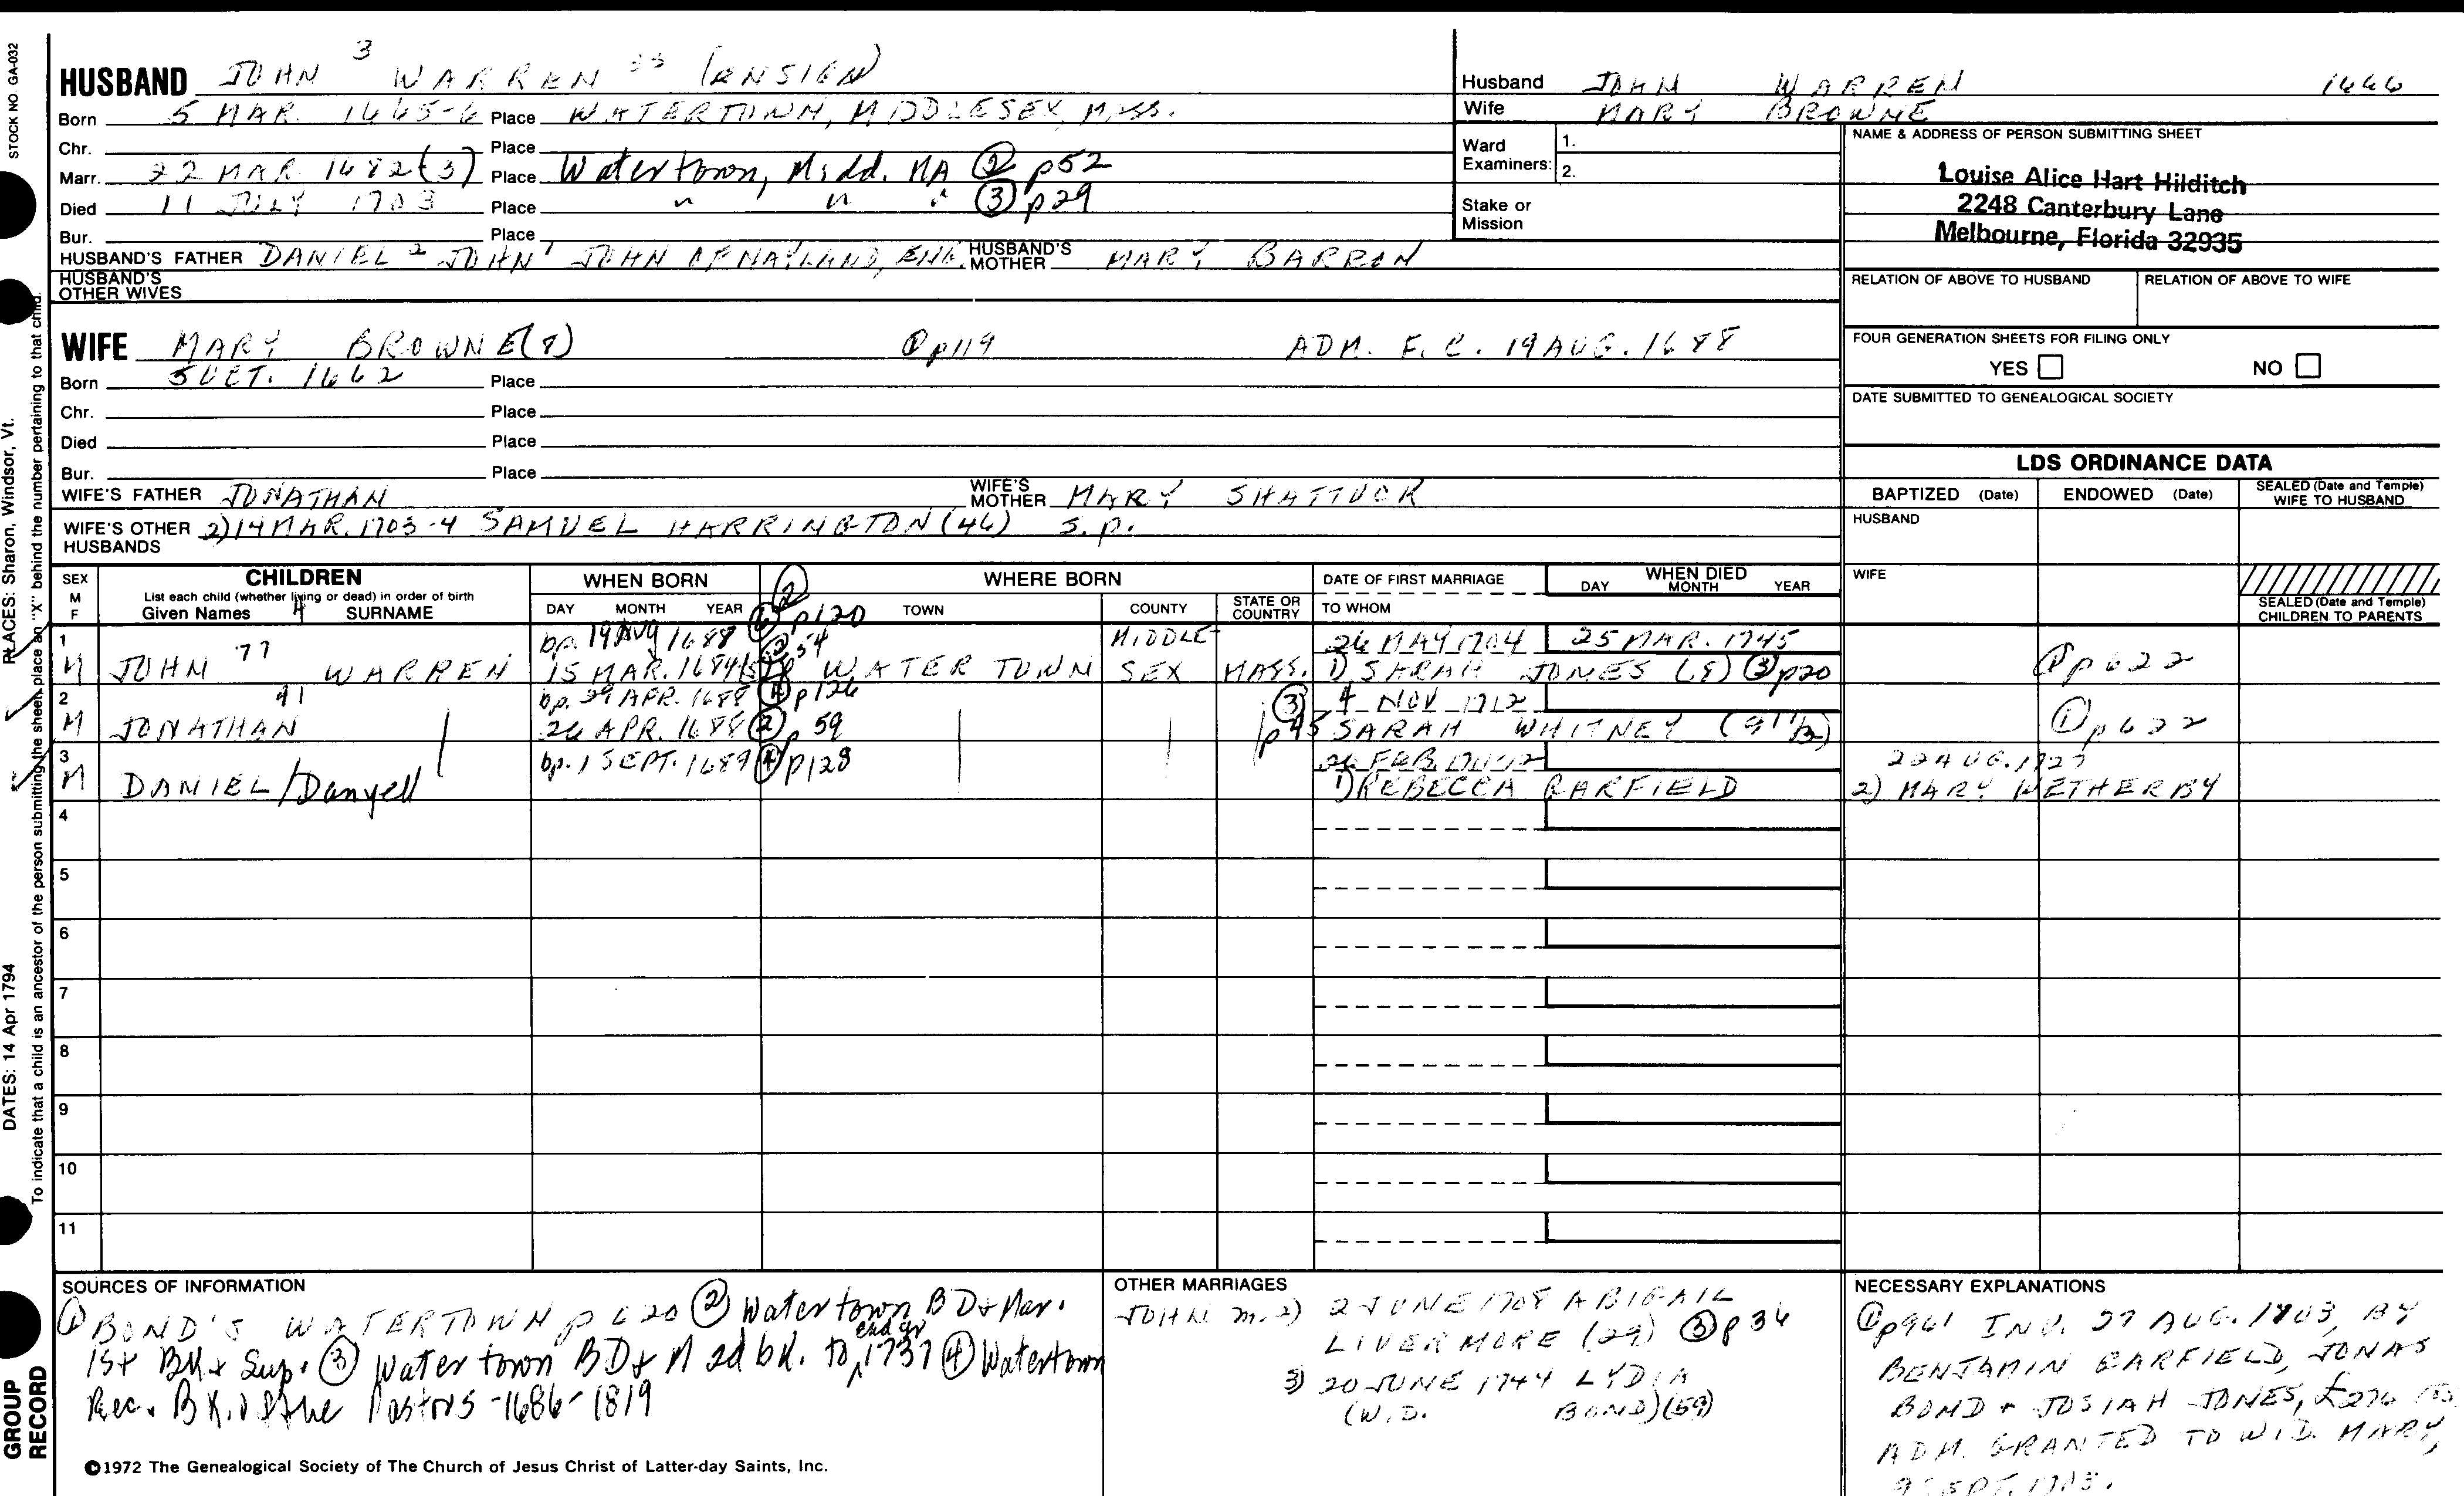 STOCK NO. GA-032
HUSBAND JOHN 3 WARREN 33 (ENSIGN)
Born 5 MAR. 1665-6 Place WATERTOWN, MIDDLESEX, MASS.
Chr. Place
Marr. 22 MAR 1682(3) Place Watertown, Midd. MA ② p52
Died 11 JULY 1703 Place " " " ③ p29
Bur. Place
HUSBAND'S FATHER DANIEL 2 JOHN 1 JOHN OF NAYLAND, ENG. HUSBAND'S MOTHER MARY BARRON
HUSBAND'S OTHER WIVES
Husband JOHN WARREN 1666
Wife MARY BROWNE
Ward Examiners: 1.
2.
Stake or Mission
NAME & ADDRESS OF PERSON SUBMITTING SHEET
Louise Alice Hart Hilditch
2248 Canterbury Lane
Melbourne, Florida 32935
RELATION OF ABOVE TO HUSBAND RELATION OF ABOVE TO WIFE
FOUR GENERATION SHEETS FOR FILING ONLY
YES NO
DATE SUBMITTED TO GENEALOGICAL SOCIETY
WIFE MARY BROWNE(8) ① p119 ADM. F. C. 19 AUG. 1688
Born 5 OCT. 1662 Place
Chr. Place
Died Place
Bur. Place
WIFE'S FATHER JONATHAN WIFE'S MOTHER MARY SHATTUCK
WIFE'S OTHER HUSBANDS 2) 14 MAR. 1703-4 SAMUEL HARRINGTON (46) S.P.
LDS ORDINANCE DATA
BAPTIZED (Date) ENDOWED (Date) SEALED (Date and Temple) WIFE TO HUSBAND
HUSBAND
WIFE
SEALED (Date and Temple) CHILDREN TO PARENTS
SEX M F CHILDREN WHEN BORN ② WHERE BORN DATE OF FIRST MARRIAGE WHEN DIED
List each child (whether living or dead) in order of birth
Given Names 4 SURNAME DAY MONTH YEAR TOWN COUNTY STATE OR COUNTRY TO WHOM DAY MONTH YEAR
1 bp. 19 Aug 1688 ④ p120 MIDDLE- 26 MAY 1704 25 MAR. 1745
M JOHN 77 WARREN 15 MAR. 1684/5 ② 54 WATERTOWN SEX MASS. 1) SARAH JONES (8) ③ p20 ① p622
2 91 bp. 29 APR. 1688 ④ p126 ③ 4 NOV 1712
M JONATHAN 26 APR. 1688 ② p 59 p45 SARAH WHITNEY (91 1/2) ① p622
3 bp. 1 SEPT. 1689 ④ p128 26 FEB. 22 AUG. 1727
M DANIEL/Danyell 1) REBECCA GARFIELD 2) MARY WETHERBY
4
5
6
7
8
9
10
11
SOURCES OF INFORMATION
① BOND'S WATERTOWN p 620 ② Watertown B D & Mar.
1st Bk & Sup. ③ Watertown BD & M 2d bk. to end yr 1737 ④ Watertown
Rec. Bk. of the Pastors - 1686-1819
OTHER MARRIAGES
JOHN m. 2) 2 JUNE 1708 ABIGAIL
LIVERMORE (29) ③ p 36
3) 20 JUNE 1744 LYDIA
(W.D. BOND) (59)
NECESSARY EXPLANATIONS
① p961 INV. 27 AUG. 1703, BY
BENJAMIN GARFIELD, JONAS
BOND + JOSIAH JONES, £276
ADM. GRANTED TO WID. MARY,
9 SEPT. 1703.
©1972 The Genealogical Society of The Church of Jesus Christ of Latter-day Saints, Inc.
GROUP RECORD
DATES: 14 Apr 1794 PLACES: Sharon, Windsor, Vt.
To indicate that a child is an ancestor of the person submitting the sheet, place an "X" behind the number pertaining to that child.